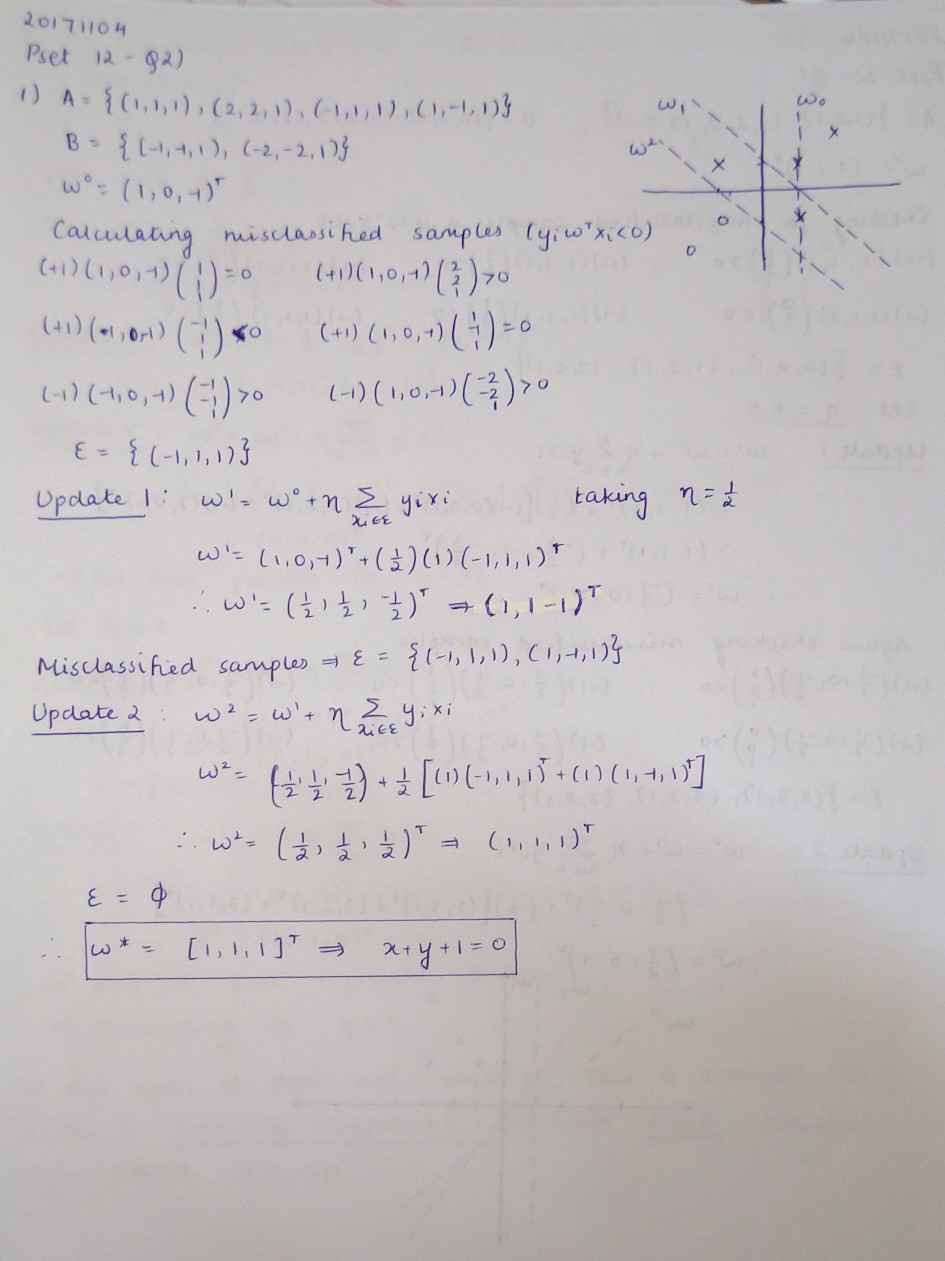 20171104
Pset 12 - Q2)
1) A = {(1,1,1), (2,2,1), (-1,1,1), (1,-1,1)}
B = {(-1,-1,1), (-2,-2,1)}
w⁰ = (1, 0, -1)ᵀ
w₁ w₀
w²
Calculating misclassified samples (yᵢwᵀxᵢ<0)
(+1)(1,0,-1)(1 1 1) = 0 (+1)(1,0,-1)(2 2 1) >0
(+1)(1,0,-1)(-1 1 1) <0 (+1)(1,0,-1)(1 -1 1) = 0
(-1)(-1,0,-1)(-1 -1 1) >0 (-1)(1,0,-1)(-2 -2 1) >0
ε = {(-1,1,1)}
Update 1: w¹ = w⁰ + η Σ xᵢ∈ε yᵢxᵢ taking η = 1/2
w¹ = (1,0,-1)ᵀ + (1/2)(1)(-1,1,1)ᵀ
∴ w¹ = (1/2, 1/2, -1/2)ᵀ ⇒ (1, 1 -1)ᵀ
Misclassified samples ⇒ ε = {(-1,1,1), (1,-1,1)}
Update 2: w² = w¹ + η Σ xᵢ∈ε yᵢxᵢ
w² = (1/2, 1/2, -1/2) + 1/2 [(1)(-1,1,1)ᵀ + (1)(1,-1,1)ᵀ]
∴ w² = (1/2, 1/2, 1/2)ᵀ ⇒ (1,1,1)ᵀ
ε = ϕ
∴ w* = [1,1,1]ᵀ ⇒ x+y+1 = 0